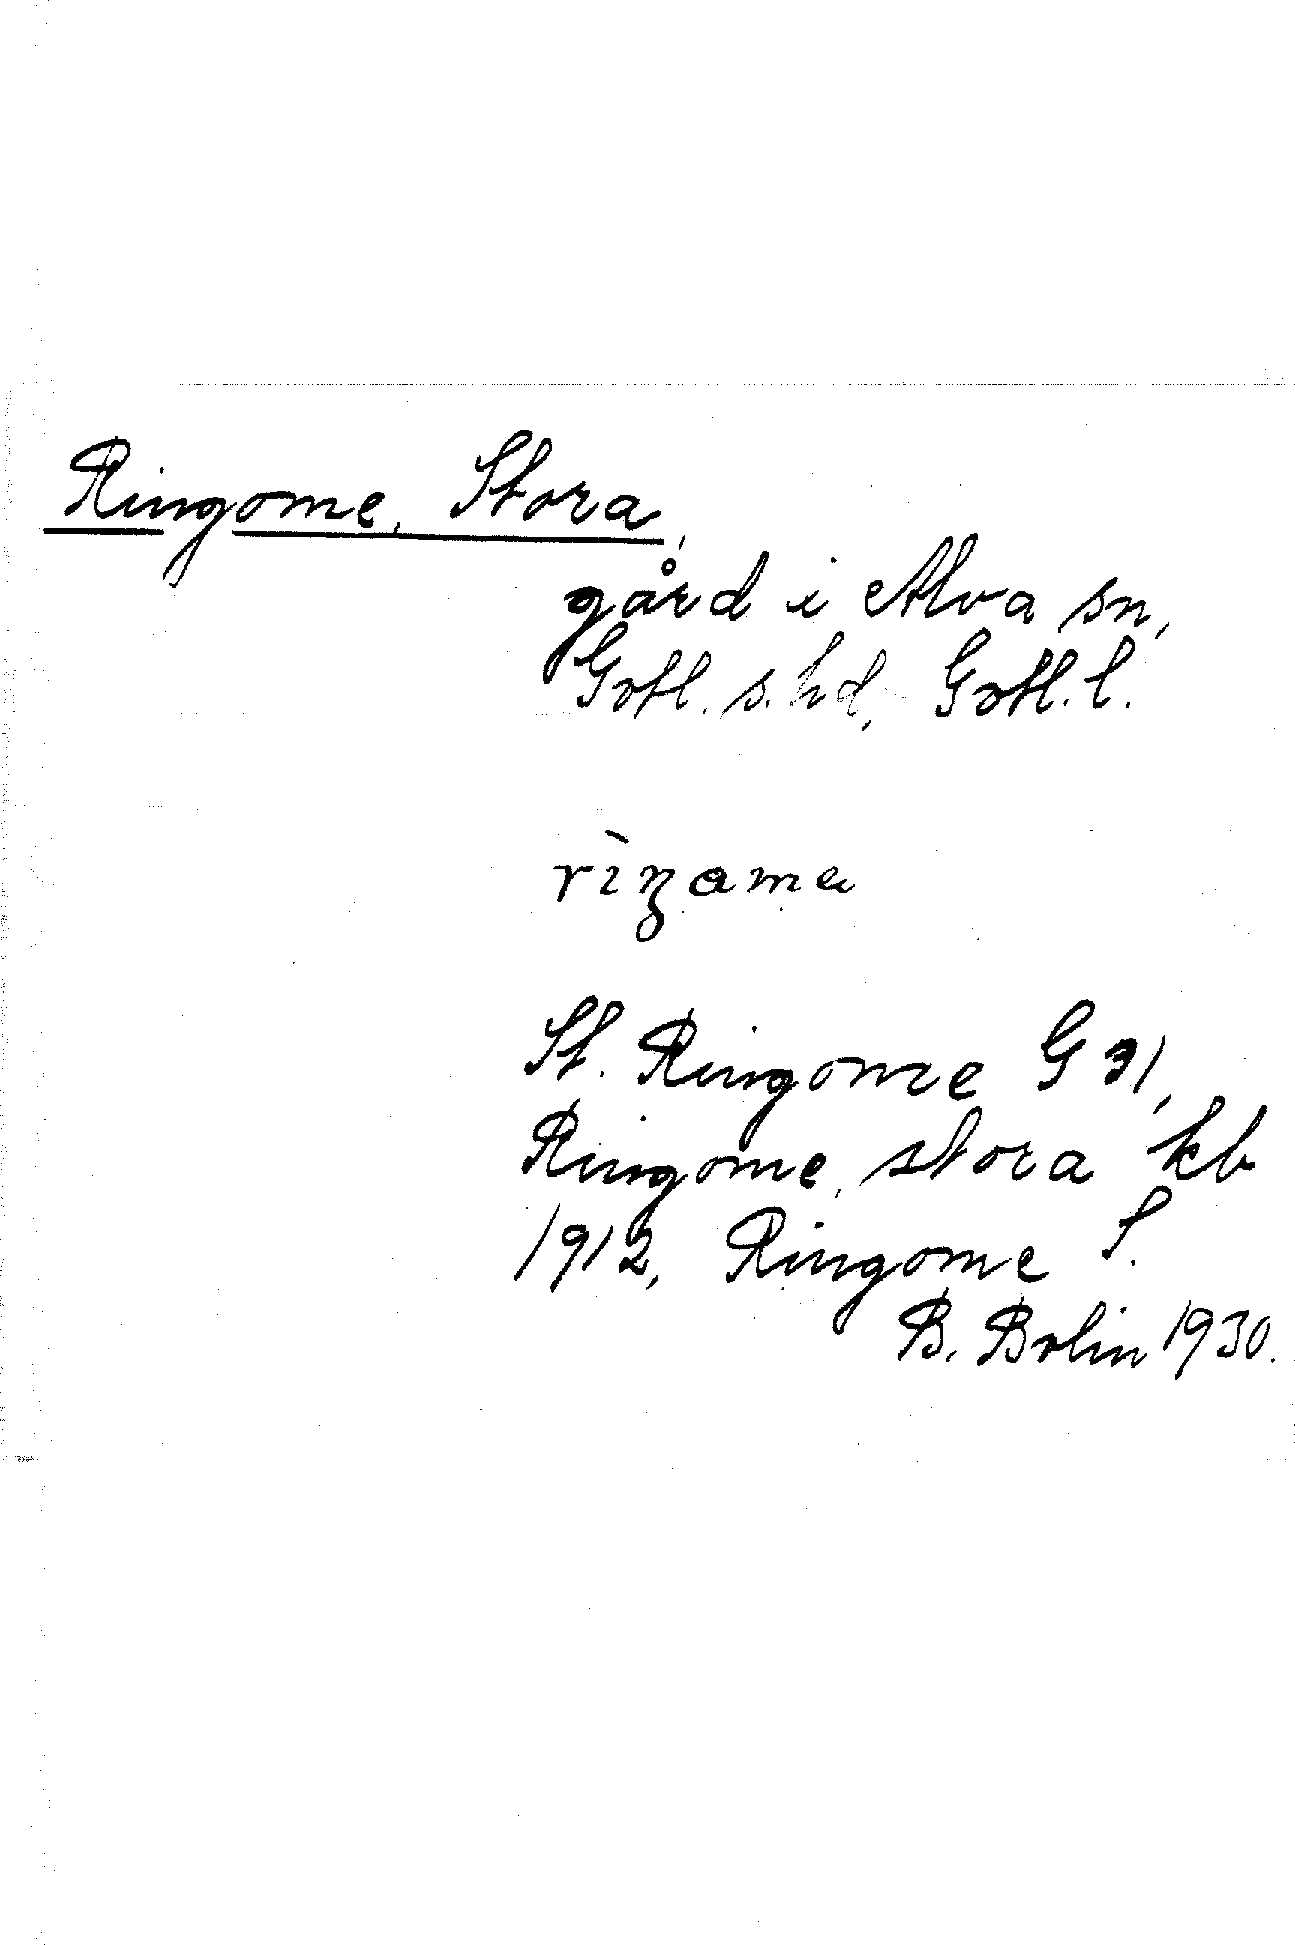 Ringome, Stora,
gård i Alva sn,
Gotl. s. hd, Gotl. l.
rìŋame
St. Ringome G 31,
Ringome, stora kb
1912, Ringome S.
B. Bolin 1930.